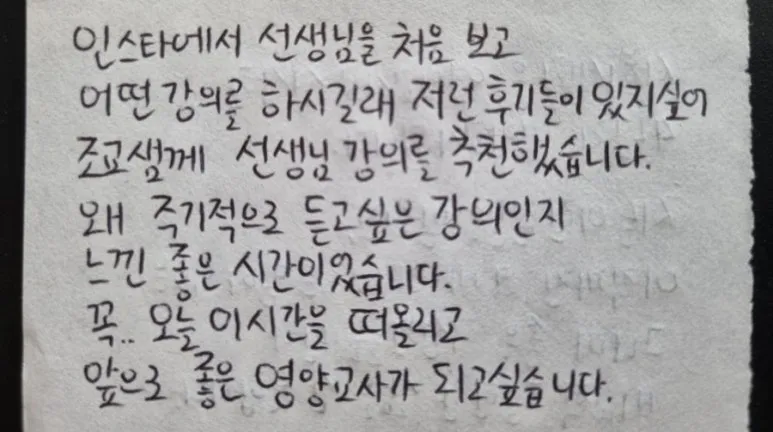 인스타에서 선생님을 처음 보고
어떤 강의를 하시길래 저런 후기들이 있지싶어
조교샘께 선생님 강의를 추천했습니다.
왜 주기적으로 듣고싶은 강의인지
느낀 좋은 시간이었습니다.
꼭.. 오늘 이시간을 떠올리고
앞으로 좋은 영양교사가 되고싶습니다.